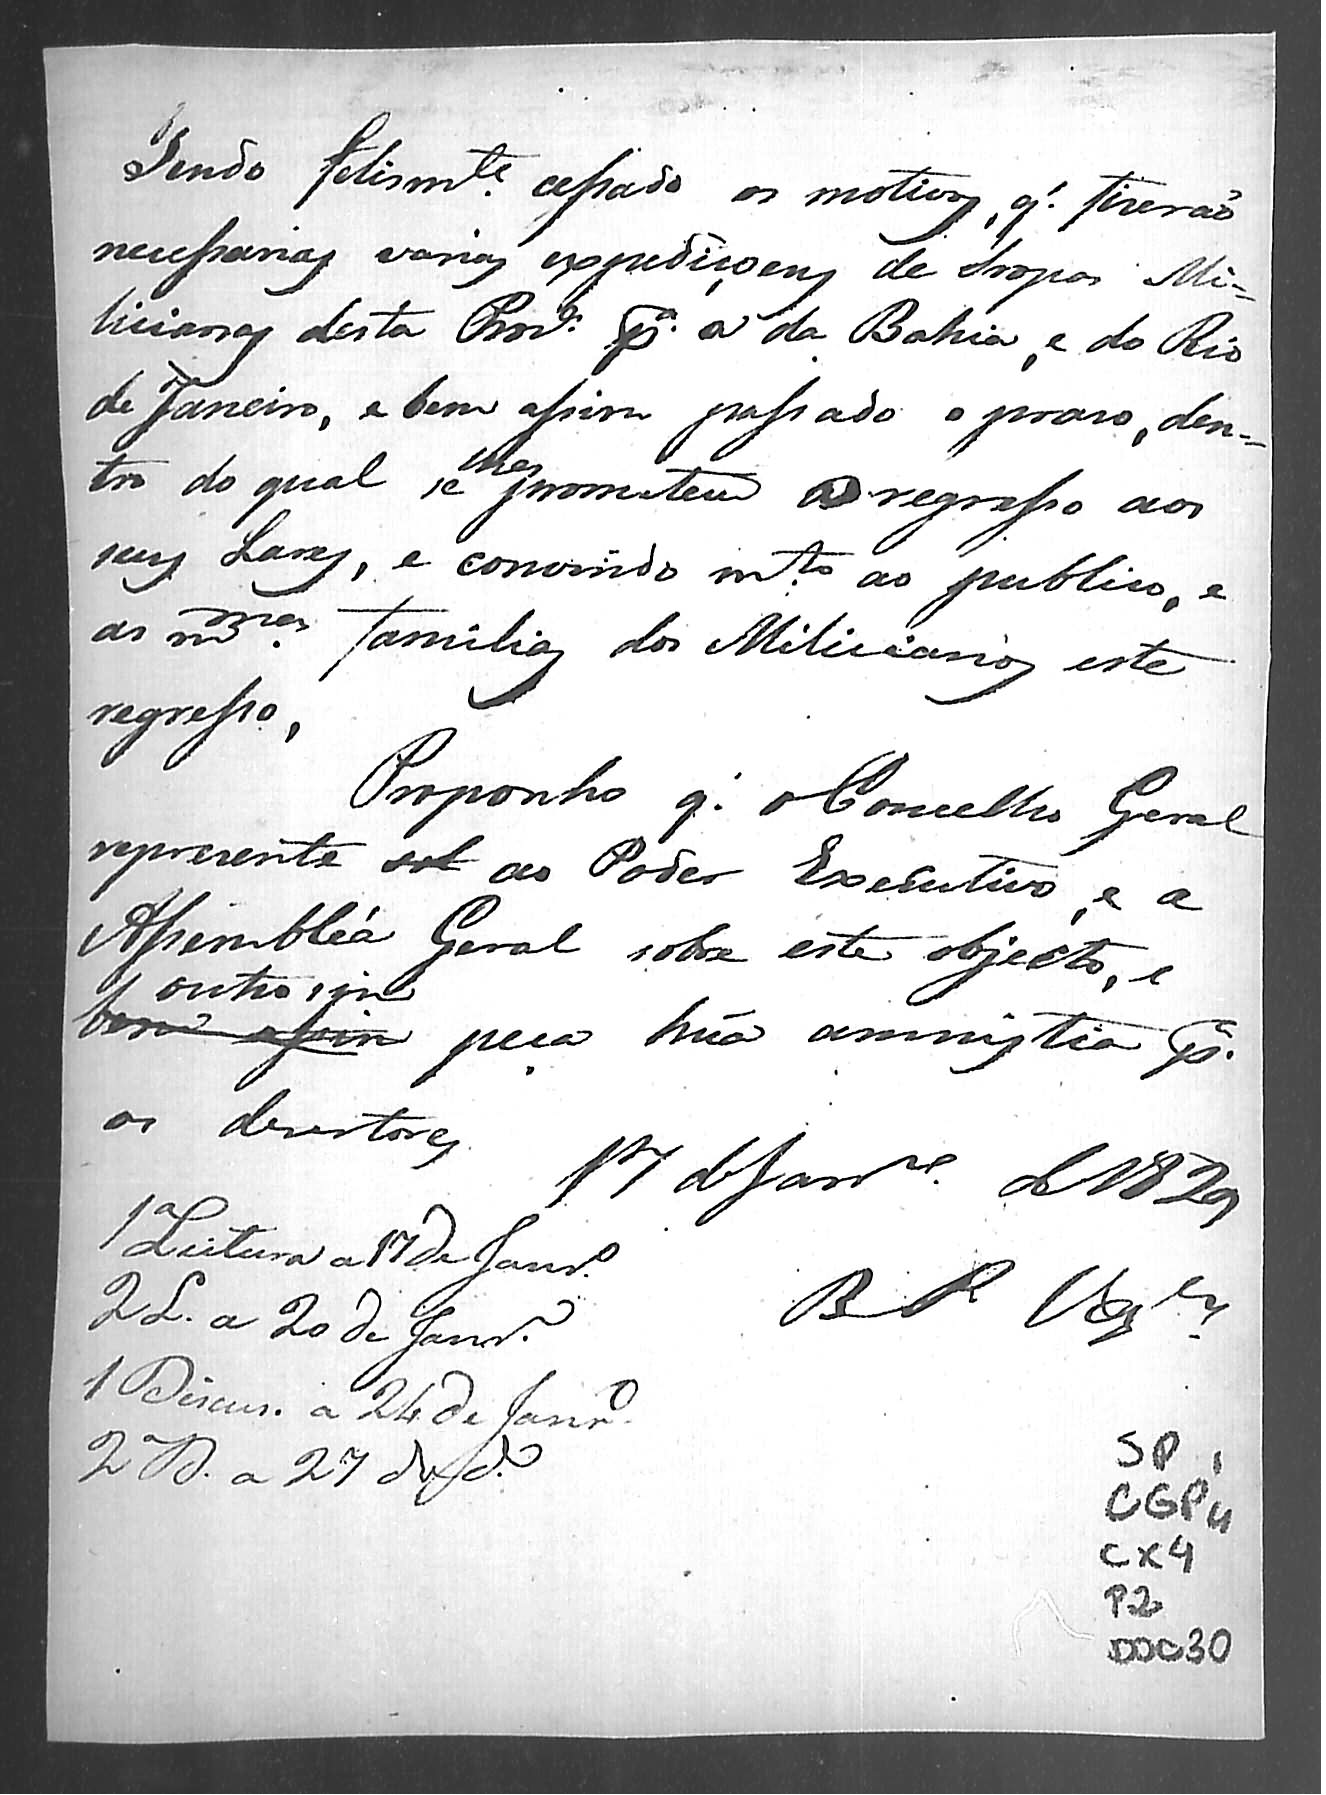 Tendo felismte. cessado os motivos, q'. fizerão
necessarias varias expediçoens de Tropas Mi-
licianas desta Prova. pa. a da Bahia, e do Rio
de Janeiro, e bem assim passado o praso, den-
tro do qual se lhes prometeu o regresso aos
seus Lares, e convindo mto. ao publico, e
as mmas. familias dos Milicianos este
regresso,
Proponho q'. o Concelho Geral
represente sob ao Poder Executivo, e a
Assembléa Geral sobre este objecto, e
outro sim
bem assim peça hũa amnistia pa.
os desertores
17 de Janro. de 1829
1a Leitura a 17 de Janro.
B P Vascos.
2 L. a 20 de Janro.
1 Discus. a 24 de Janro.
2a D. a 27 de do.
SP
CGP4
CX4
P2
DOC30